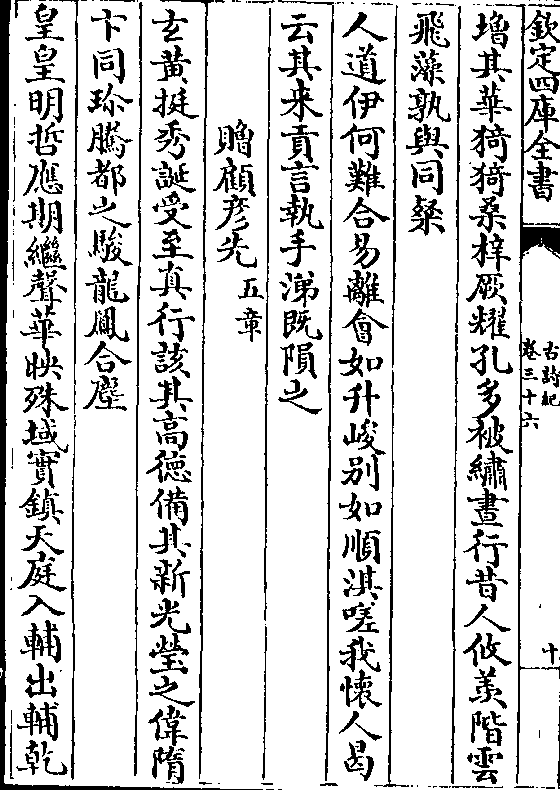 欽定四庫全書
古詩紀
卷三十六
十
增其華猗猗桑梓厥耀孔多被繡晝行昔人攸羨階雲
飛藻孰與同粲
人道伊何難合易離會如升峻别如順淇嗟我懷人曷
云其来貢言執手涕既隕之
贈顧彦先五章
玄黄挺秀誕受至真行該其高德備其新光瑩之偉隋
卞同珍騰都之駿龍鳳合塵
皇皇明哲應期繼聲華映殊域實鎮天庭入輔出輔乾